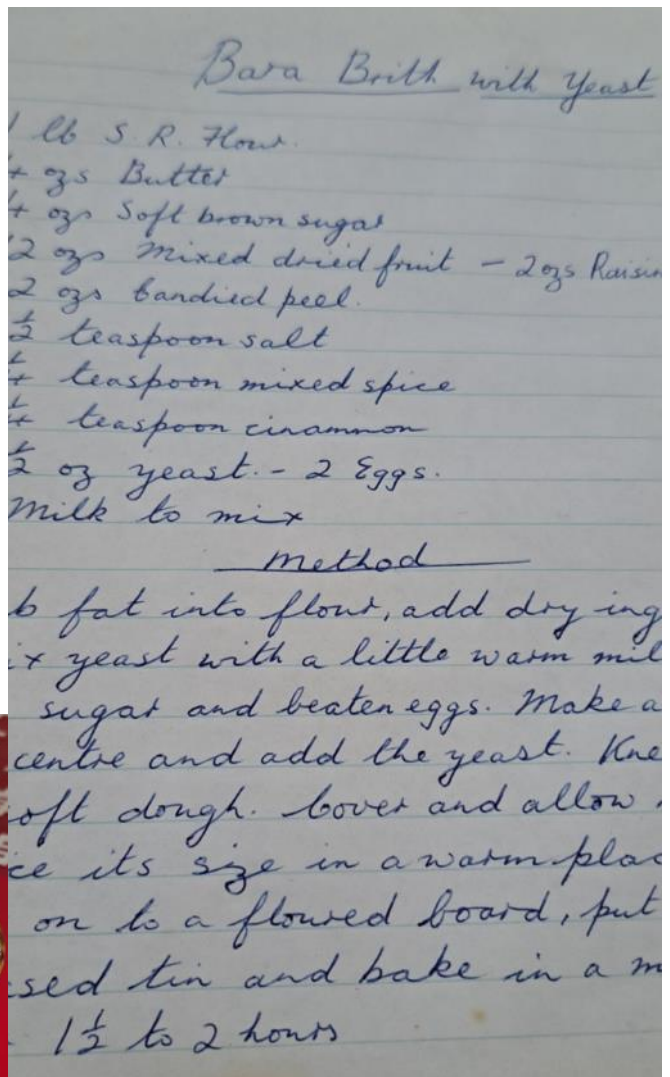 Bara Brith with Yeast
1 lb S. R. Flour.
4 ozs Butter
4 ozs Soft brown sugar
12 ozs Mixed dried fruit - 2 ozs Raisin
2 ozs Candied peel.
½ teaspoon salt
¼ teaspoon mixed spice
¼ teaspoon cinammon
½ oz yeast. - 2 Eggs.
Milk to mix
Method
b fat into flour, add dry ing
ix yeast with a little warm mil
sugar and beaten eggs. Make a
centre and add the yeast. Kne
oft dough. Cover and allow
ce its size in a warm plac
on to a floured board, put
sed tin and bake in a m
1½ to 2 hours